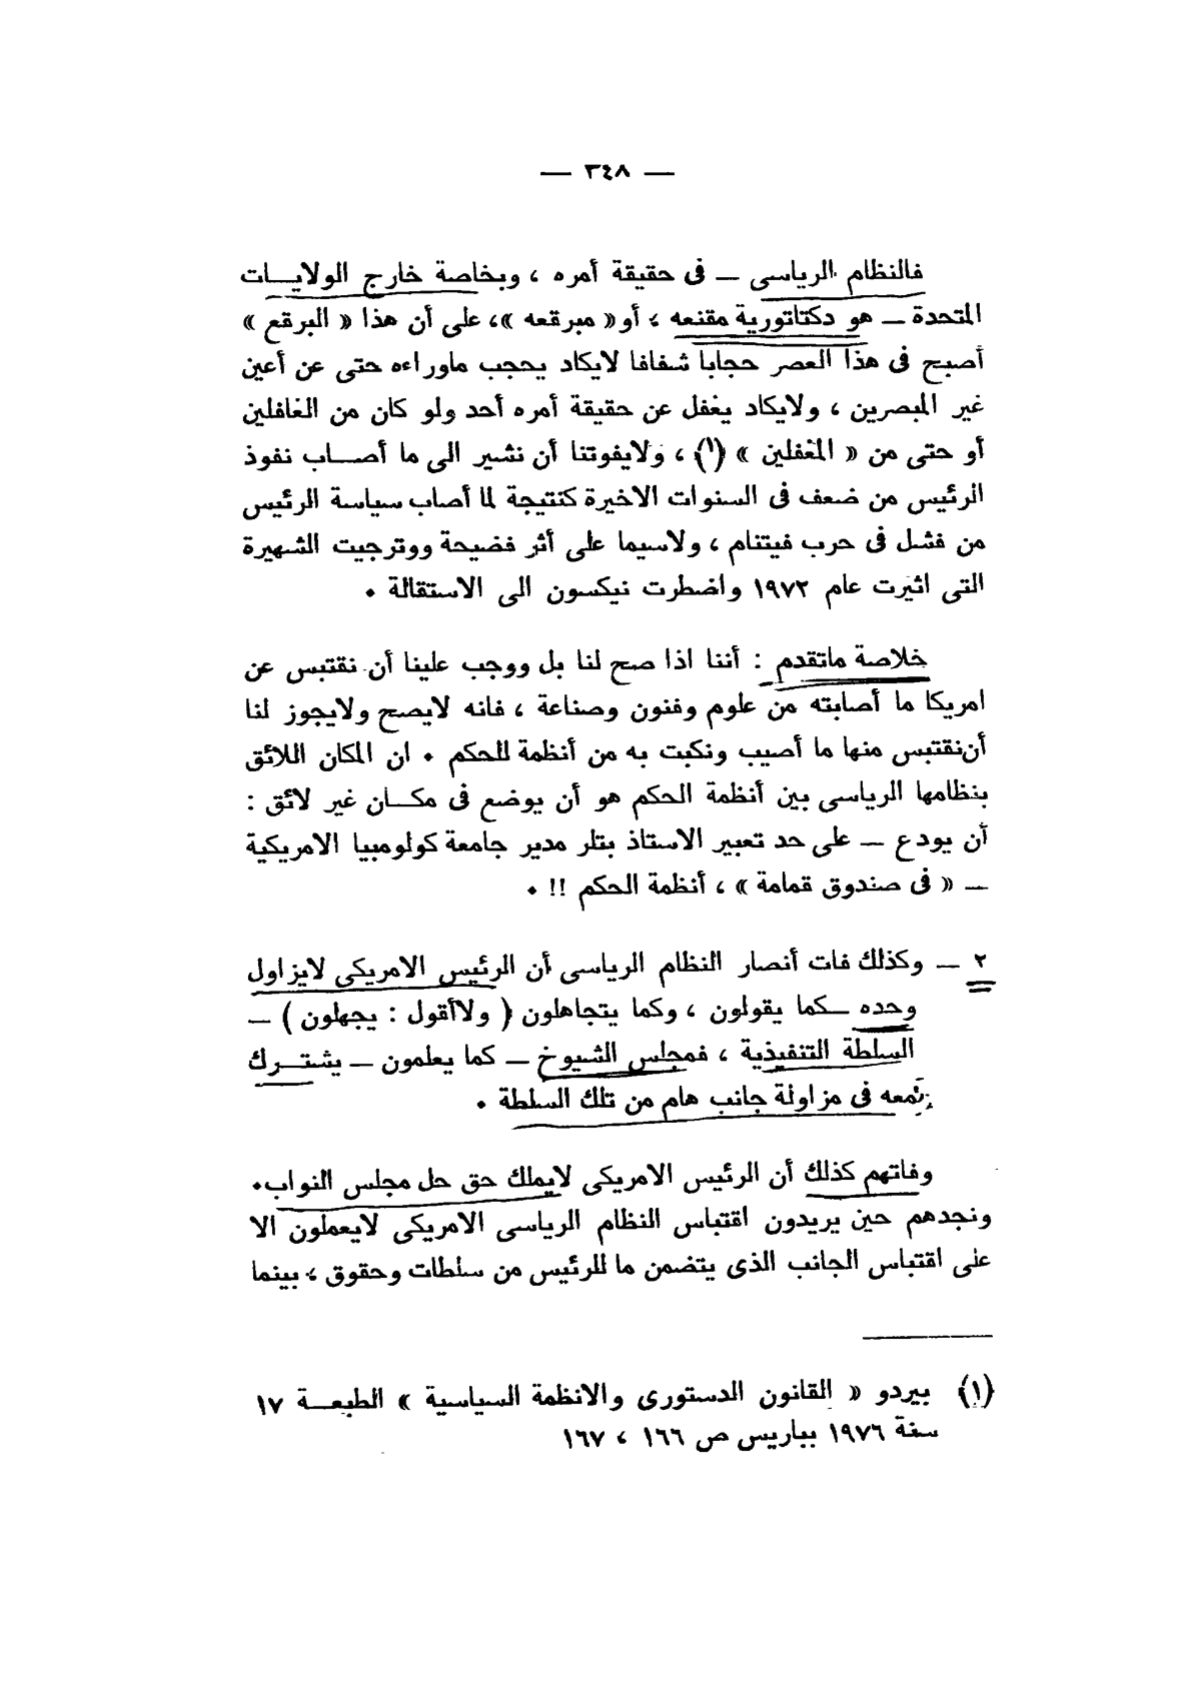 — ٣٤٨ —
فالنظام الرياسى — فى حقيقة أمره ، وبخاصة خارج الولايــات
المتحدة — هو دكتاتورية مقنعه ، أو « مبرقعه »، على أن هذا « البرقع »
أصبح فى هذا العصر حجابا شفافا لايكاد يحجب ماوراءه حتى عن أعين
غير المبصرين ، ولايكاد يغفل عن حقيقة أمره أحد ولو كان من الغافلين
أو حتى من « المغفلين » (١) ، ولايفوتنا أن نشير الى ما أصــاب نفوذ
الرئيس من ضعف فى السنوات الاخيرة كنتيجة لما أصاب سياسة الرئيس
من فشل فى حرب فيتنام ، ولاسيما على أثر فضيحة ووترجيت الشهيرة
التى اثيرت عام ١٩٧٢ واضطرت نيكسون الى الاستقالة .
خلاصة ماتقدم : أننا اذا صح لنا بل ووجب علينا أن نقتبس عن
امريكا ما أصابته من علوم وفنون وصناعة ، فانه لايصح ولايجوز لنا
أن نقتبس منها ما أصيب ونكبت به من أنظمة للحكم . ان المكان اللائق
بنظامها الرياسى بين أنظمة الحكم هو أن يوضع فى مكــان غير لائق :
أن يودع — على حد تعبير الاستاذ بتلر مدير جامعة كولومبيا الامريكية
— « فى صندوق قمامة » ، أنظمة الحكم !! .
٢ — وكذلك فات أنصار النظام الرياسى أن الرئيس الامريكى لايزاول
وحده — كما يقولون ، وكما يتجاهلون ( ولاأقول : يجهلون ) —
السلطة التنفيذية ، فمجلس الشيوخ — كما يعلمون — يشتــرك
معه فى مزاولة جانب هام من تلك السلطة .
وفاتهم كذلك أن الرئيس الامريكى لايملك حق حل مجلس النواب.
ونجدهم حين يريدون اقتباس النظام الرياسى الامريكى لايعملون الا
على اقتباس الجانب الذى يتضمن ما للرئيس من سلطات وحقوق ، بينما
(١) بيردو « القانون الدستورى والانظمة السياسية » الطبعــة ١٧
سنة ١٩٧٦ بباريس ص ١٦٦ ، ١٦٧